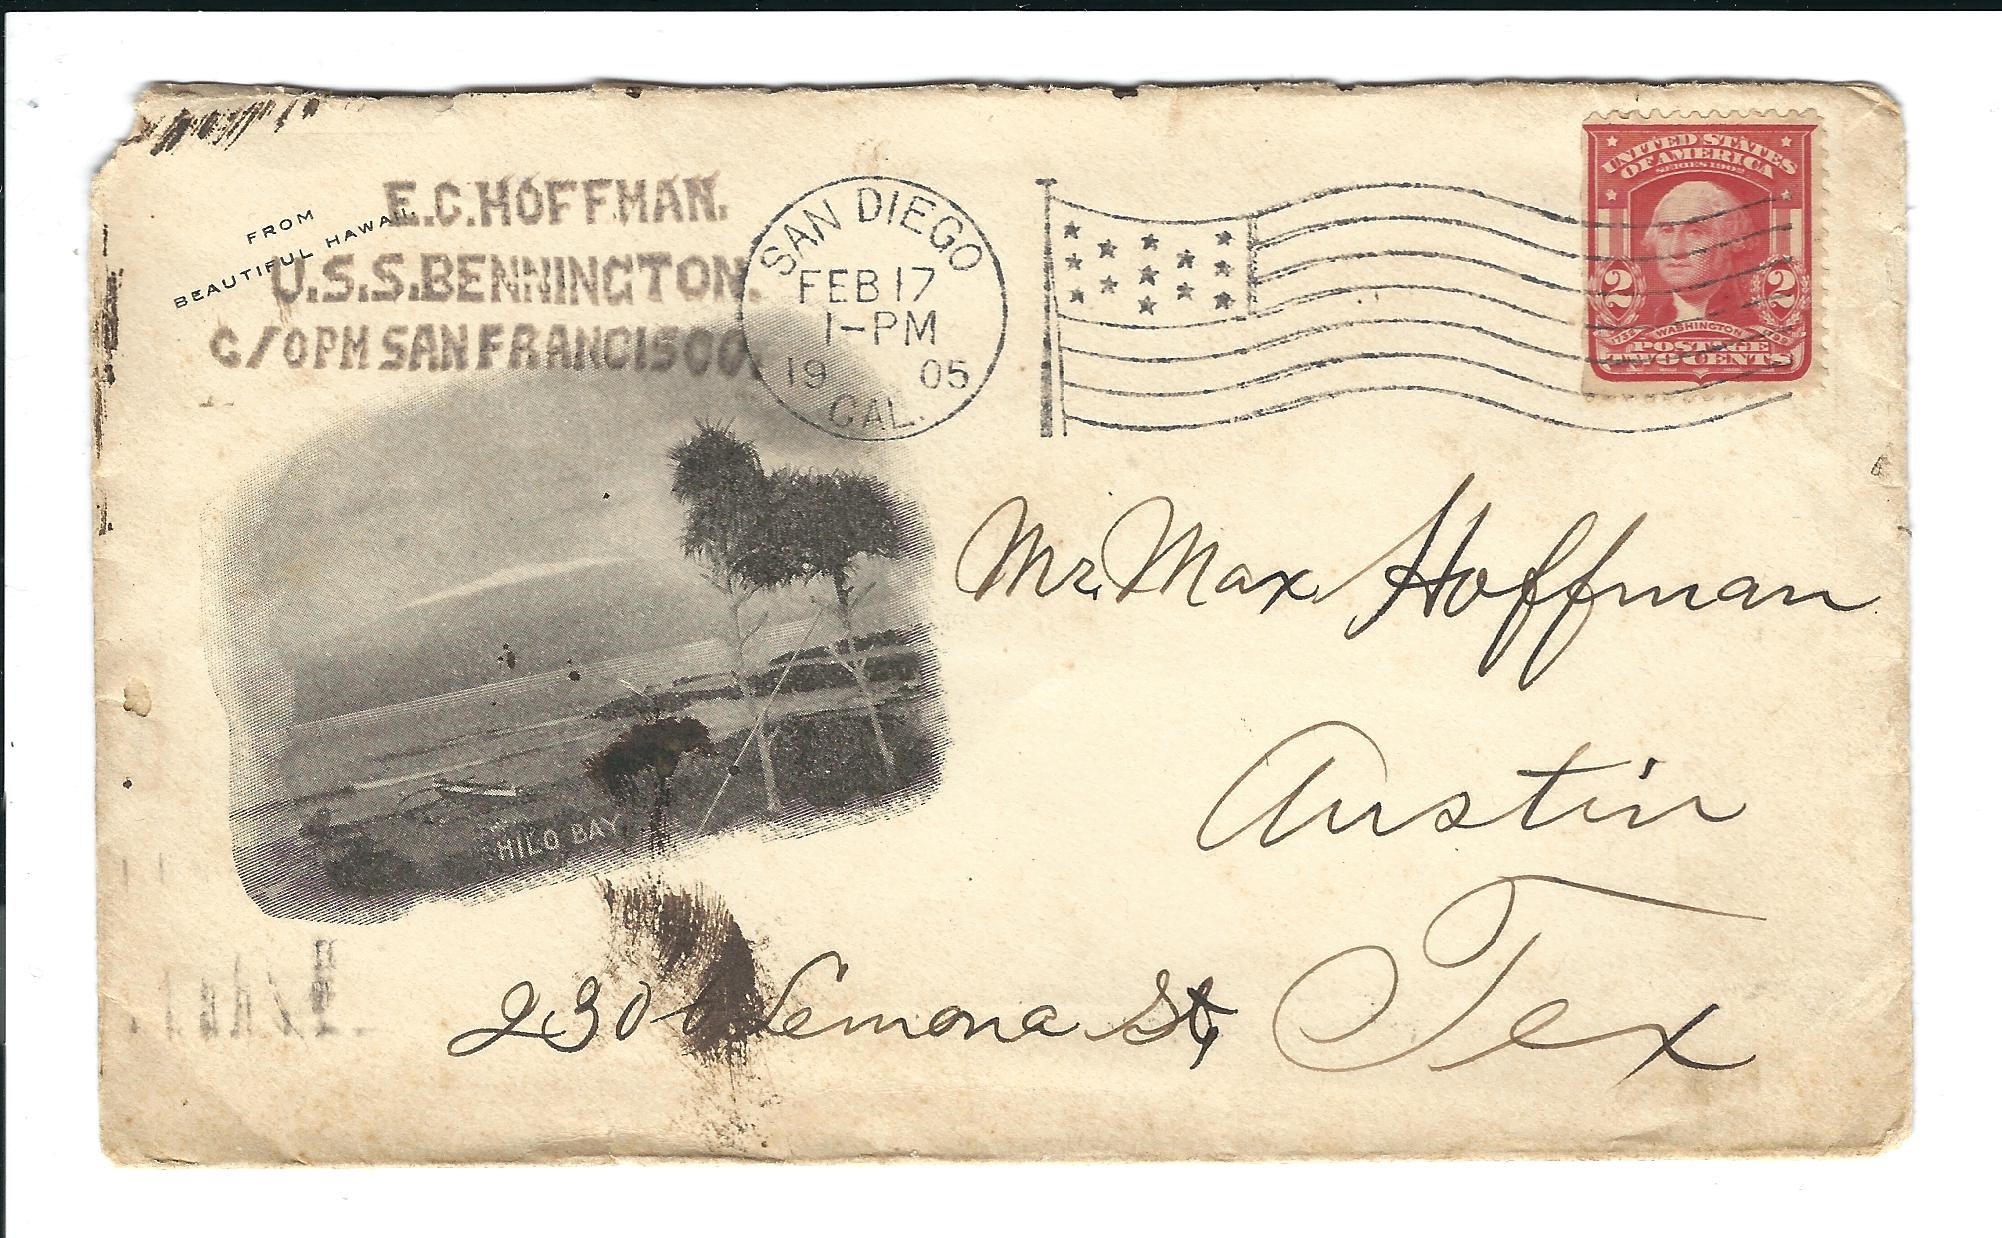 E.C.HOFFMAN.
U.S.S.BENNINGTON.
C/O PM SAN FRANCISCO.
FROM
BEAUTIFUL HAWAII.
SAN DIEGO
FEB 17
1-PM
19 05
CAL.
UNITED STATES
OF AMERICA
SERIES 1902
2 2
1732 WASHINGTON 1799
POSTAGE
TWO CENTS
Mr. Max Hoffman
Austin
Tex
HILO BAY
St,